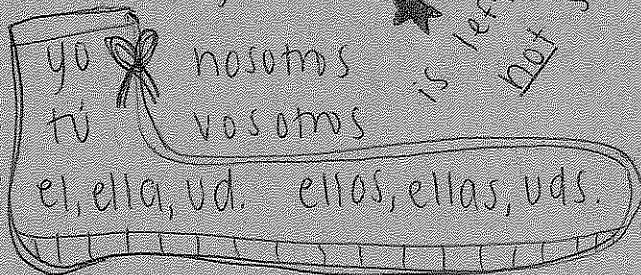 yo nosotros
tú vosotros
el, ella, ud. ellos, ellas, uds.
is
not